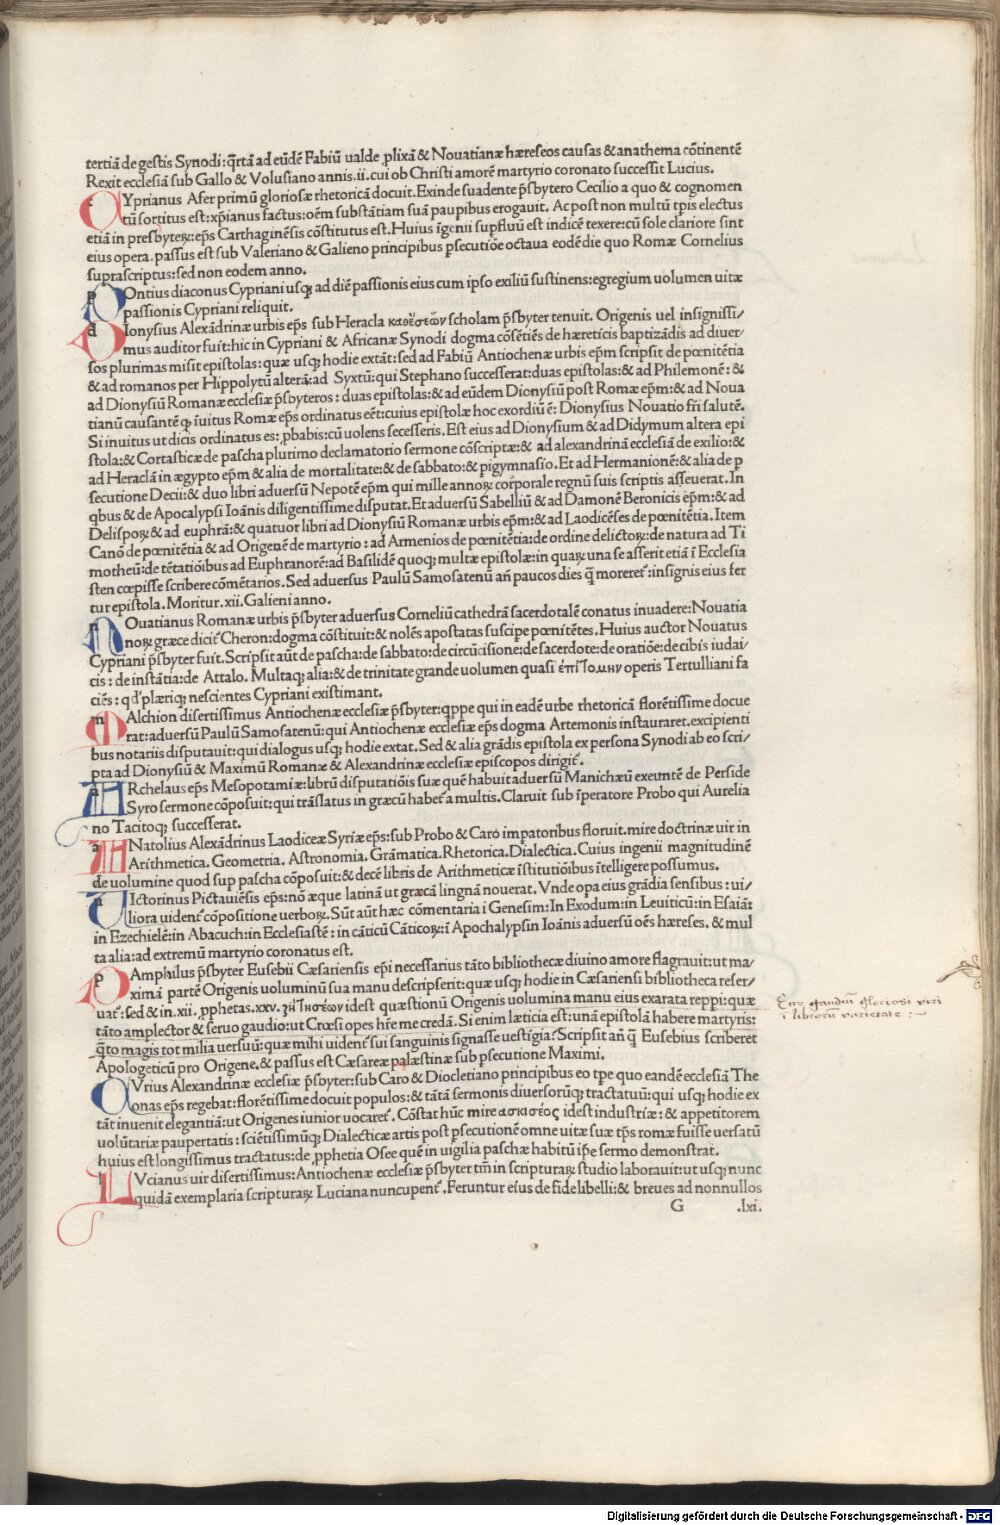 tertiā de gestis Synodi: q̄rtā ad eūdē Fabiū ualde ꝓlixā & Nouatianæ hæreseos causas & anathema cōtinentē
Rexit ecclesiā sub Gallo & Volusiano annis.ii.cui ob Christi amorē martyrio coronato successit Lucius.
CYprianus Afer primū gloriosæ rhetoricā docuit. Exinde suadente p̄sbytero Cecilio a quo & cognomen
tū sortitus est: xp̄ianus factus: oēm substātiam suā paupibus erogauit. Ac post non multū tp̄is electus
etiā in presbyteꝝ: ep̄s Carthaginēsis cōstitutus est. Huius īgenii supfluū est indicē texere: cū sole clariore sint
eius opera. passus est sub Valeriano & Galieno principibus psecutiōe octaua eodē die quo Romæ Cornelius
suprascriptus: sed non eodem anno.
POntius diaconus Cypriani usq; ad diē passionis eius cum ipso exiliū sustinens: egregium uolumen uitæ
passionis Cypriani reliquit.
dIonysius Alexādrinæ urbis ep̄s sub Heracla καθεστων scholam p̄sbyter tenuit. Origenis uel insignissi/
mus auditor fuit: hic in Cypriani & Africanæ Synodi dogma cōsētiēs de hæreticis baptizādis ad diuer/
sos plurimas misit epistolas: quæ usq; hodie extāt: sed ad Fabiū Antiochenæ urbis ep̄m scripsit de pœnitētia
& ad romanos per Hippolytū alterā: ad Syxtū: qui Stephano successerat: duas epistolas: & ad Philemonē: &
ad Dionysiū Romanæ ecclesiæ p̄sbyteros: duas epistolas: & ad eūdem Dionysiū post Romæ ep̄m: & ad Noua
tianū causantē ꝙ īuitus Romæ ep̄s ordinatus eēt: cuius epistolæ hoc exordiū ē: Dionysius Nouatio fr̄i salutē.
Si inuitus ut dicis ordinatus es: ꝓbabis: cū uolens secesseris. Est eius ad Dionysium & ad Didymum altera epi
stola: & Cortasticæ de pascha plurimo declamatorio sermone cōscriptæ: & ad alexandrinā ecclesiā de exilio: &
ad Heraclā in ægypto ep̄m & alia de mortalitate: & de sabbato: & pigymnasio. Et ad Hermanionē: & alia de p
secutione Decii: & duo libri aduersū Nepotē ep̄m qui mille annoꝝ corporale regnū suis scriptis asseuerat. In
qbus & de Apocalypsi Ioānis diligentissime disputat. Et aduersū Sabelliū & ad Damonē Beronicis ep̄m: & ad
Delispoꝝ & ad euphrā: & quatuor libri ad Dionysiū Romanæ urbis ep̄m: & ad Laodicēses de pœnitētia. Item
Canō de pœnitētia & ad Origenē de martyrio: ad Armenios de pœnitētia: de ordine delictoꝝ: de natura ad Ti
motheū: de tētatiōibus ad Euphranorē: ad Basilidē quoq; multæ epistolæ: in quaꝝ una se asserit etiā ī Ecclesia
sten cœpisse scribere cōmētarios. Sed aduersus Paulū Samosatenū an̄ paucos dies q̄ moreret̄: insignis eius fer
tur epistola. Moritur.xii.Galieni anno.
nOuatianus Romanæ urbis p̄sbyter aduersus Corneliū cathedrā sacerdotalē conatus inuadere: Nouatia
noꝝ græce dicit̄ Cheron: dogma cōstituit: & nolēs apostatas suscipe pœnitētes. Huius auctor Nouatus
Cypriani p̄sbyter fuit. Scripsit aūt de pascha: de sabbato: de circūcisione: de sacerdote: de oratiōe: de cibis iudai/
cis: de instātia: de Attalo. Multaq; alia: & de trinitate grande uolumen quasi ἐπιτομην operis Tertulliani fa
ciēs: qd̄ plæriq; nescientes Cypriani existimant.
mAlchion disertissimus Antiochenæ ecclesiæ p̄sbyter: qppe qui in eadē urbe rhetoricā florētissime docue
rat: aduersū Paulū Samosatenū: qui Antiochenæ ecclesiæ ep̄s dogma Artemonis instauraret. excipienti
bus notariis disputauit: qui dialogus usq; hodie extat. Sed & alia grādis epistola ex persona Synodi ab eo scri/
pta ad Dionysiū & Maximū Romanæ & Alexandrinæ ecclesiæ episcopos dirigit̄.
aRchelaus ep̄s Mesopotamiæ: librū disputatiōis suæ quē habuit aduersū Manichæū exeuntē de Perside
Syro sermone cōposuit: qui trāslatus in græcū habet̄ a multis. Claruit sub īperatore Probo qui Aurelia
no Tacitoq; successerat.
aNatolius Alexādrinus Laodiceæ Syriæ ep̄s: sub Probo & Caro impatoribus floruit. mire doctrinæ uir in
Arithmetica. Geometria. Astronomia. Grāmatica. Rhetorica. Dialectica. Cuius ingenii magnitudinē
de uolumine quod sup pascha cōposuit: & decē libris de Arithmeticæ īstitutiōibus ītelligere possumus.
uIctorinus Pictauiēsis ep̄s: nō æque latinā ut græcā lingnā nouerat. Vnde opa eius grādia sensibus: ui/
liora uident̄ cōpositione uerboꝝ. Sūt aūt hæc cōmentaria i Genesim: In Exodum: in Leuiticū: in Esaiā:
in Ezechielē: in Abacuch: in Ecclesiastē: in cāticū Cāticoꝝ: ī Apochalypsin Ioānis aduersū oēs hæreses. & mul
ta alia: ad extremū martyrio coronatus est.
pAmphilus p̄sbyter Eusebii Cæsariensis ep̄i necessarius tāto bibliothecæ diuino amore flagrauit: ut ma/
ximā partē Origenis uoluminū sua manu descripserit: quæ usq; hodie in Cæsariensi bibliotheca reser/
uat̄: sed & in.xii.ꝓphetas.xxv. ἐξηγησέων idest quæstionū Origenis uolumina manu eius exarata reppi: quæ
tāto amplector & seruo gaudio: ut Crœsi opes hr̄e me credā. Si enim læticia est: unā epistolā habere martyris:
q̄to magis tot milia uersuū: quæ mihi uident̄ sui sanguinis signasse uestigia? Scripsit an̄ q̄ Eusebius scriberet
Apologeticū pro Origene. & passus est Cæsareæ palæstinæ sub psecutione Maximi.
Ergo gaudium gloriosi uiri
i librorū varietate :~
PVrius Alexandrinæ ecclesiæ p̄sbyter: sub Caro & Diocletiano principibus eo tp̄e quo eandē ecclesiā The
onas ep̄s regebat: florētissime docuit populos: & tātā sermonis diuersorūq; tractatuū: qui usq; hodie ex
tāt inuenit elegantiā: ut Origenes iunior uocaret̄. Cōstat hūc mire ασκισεός idest industriæ: & appetitorem
uolūtariæ paupertatis: sciētissimūq; Dialecticæ artis post psecutionē omne uitæ suæ tp̄s romæ fuisse uersatū
huius est longissimus tractatus: de ꝓphetia Osee quē in uigilia paschæ habitū ip̄e sermo demonstrat.
lVcianus uir disertissimus: Antiochenæ ecclesiæ p̄sbyter tm̄ in scripturaꝝ studio laborauit: ut usq; nunc
quidā exemplaria scripturaꝝ Luciana nuncupent̄. Feruntur eius de fide libelli: & breues ad nonnullos
G .lxi.
Digitalisierung gefördert durch die Deutsche Forschungsgemeinschaft - DFG